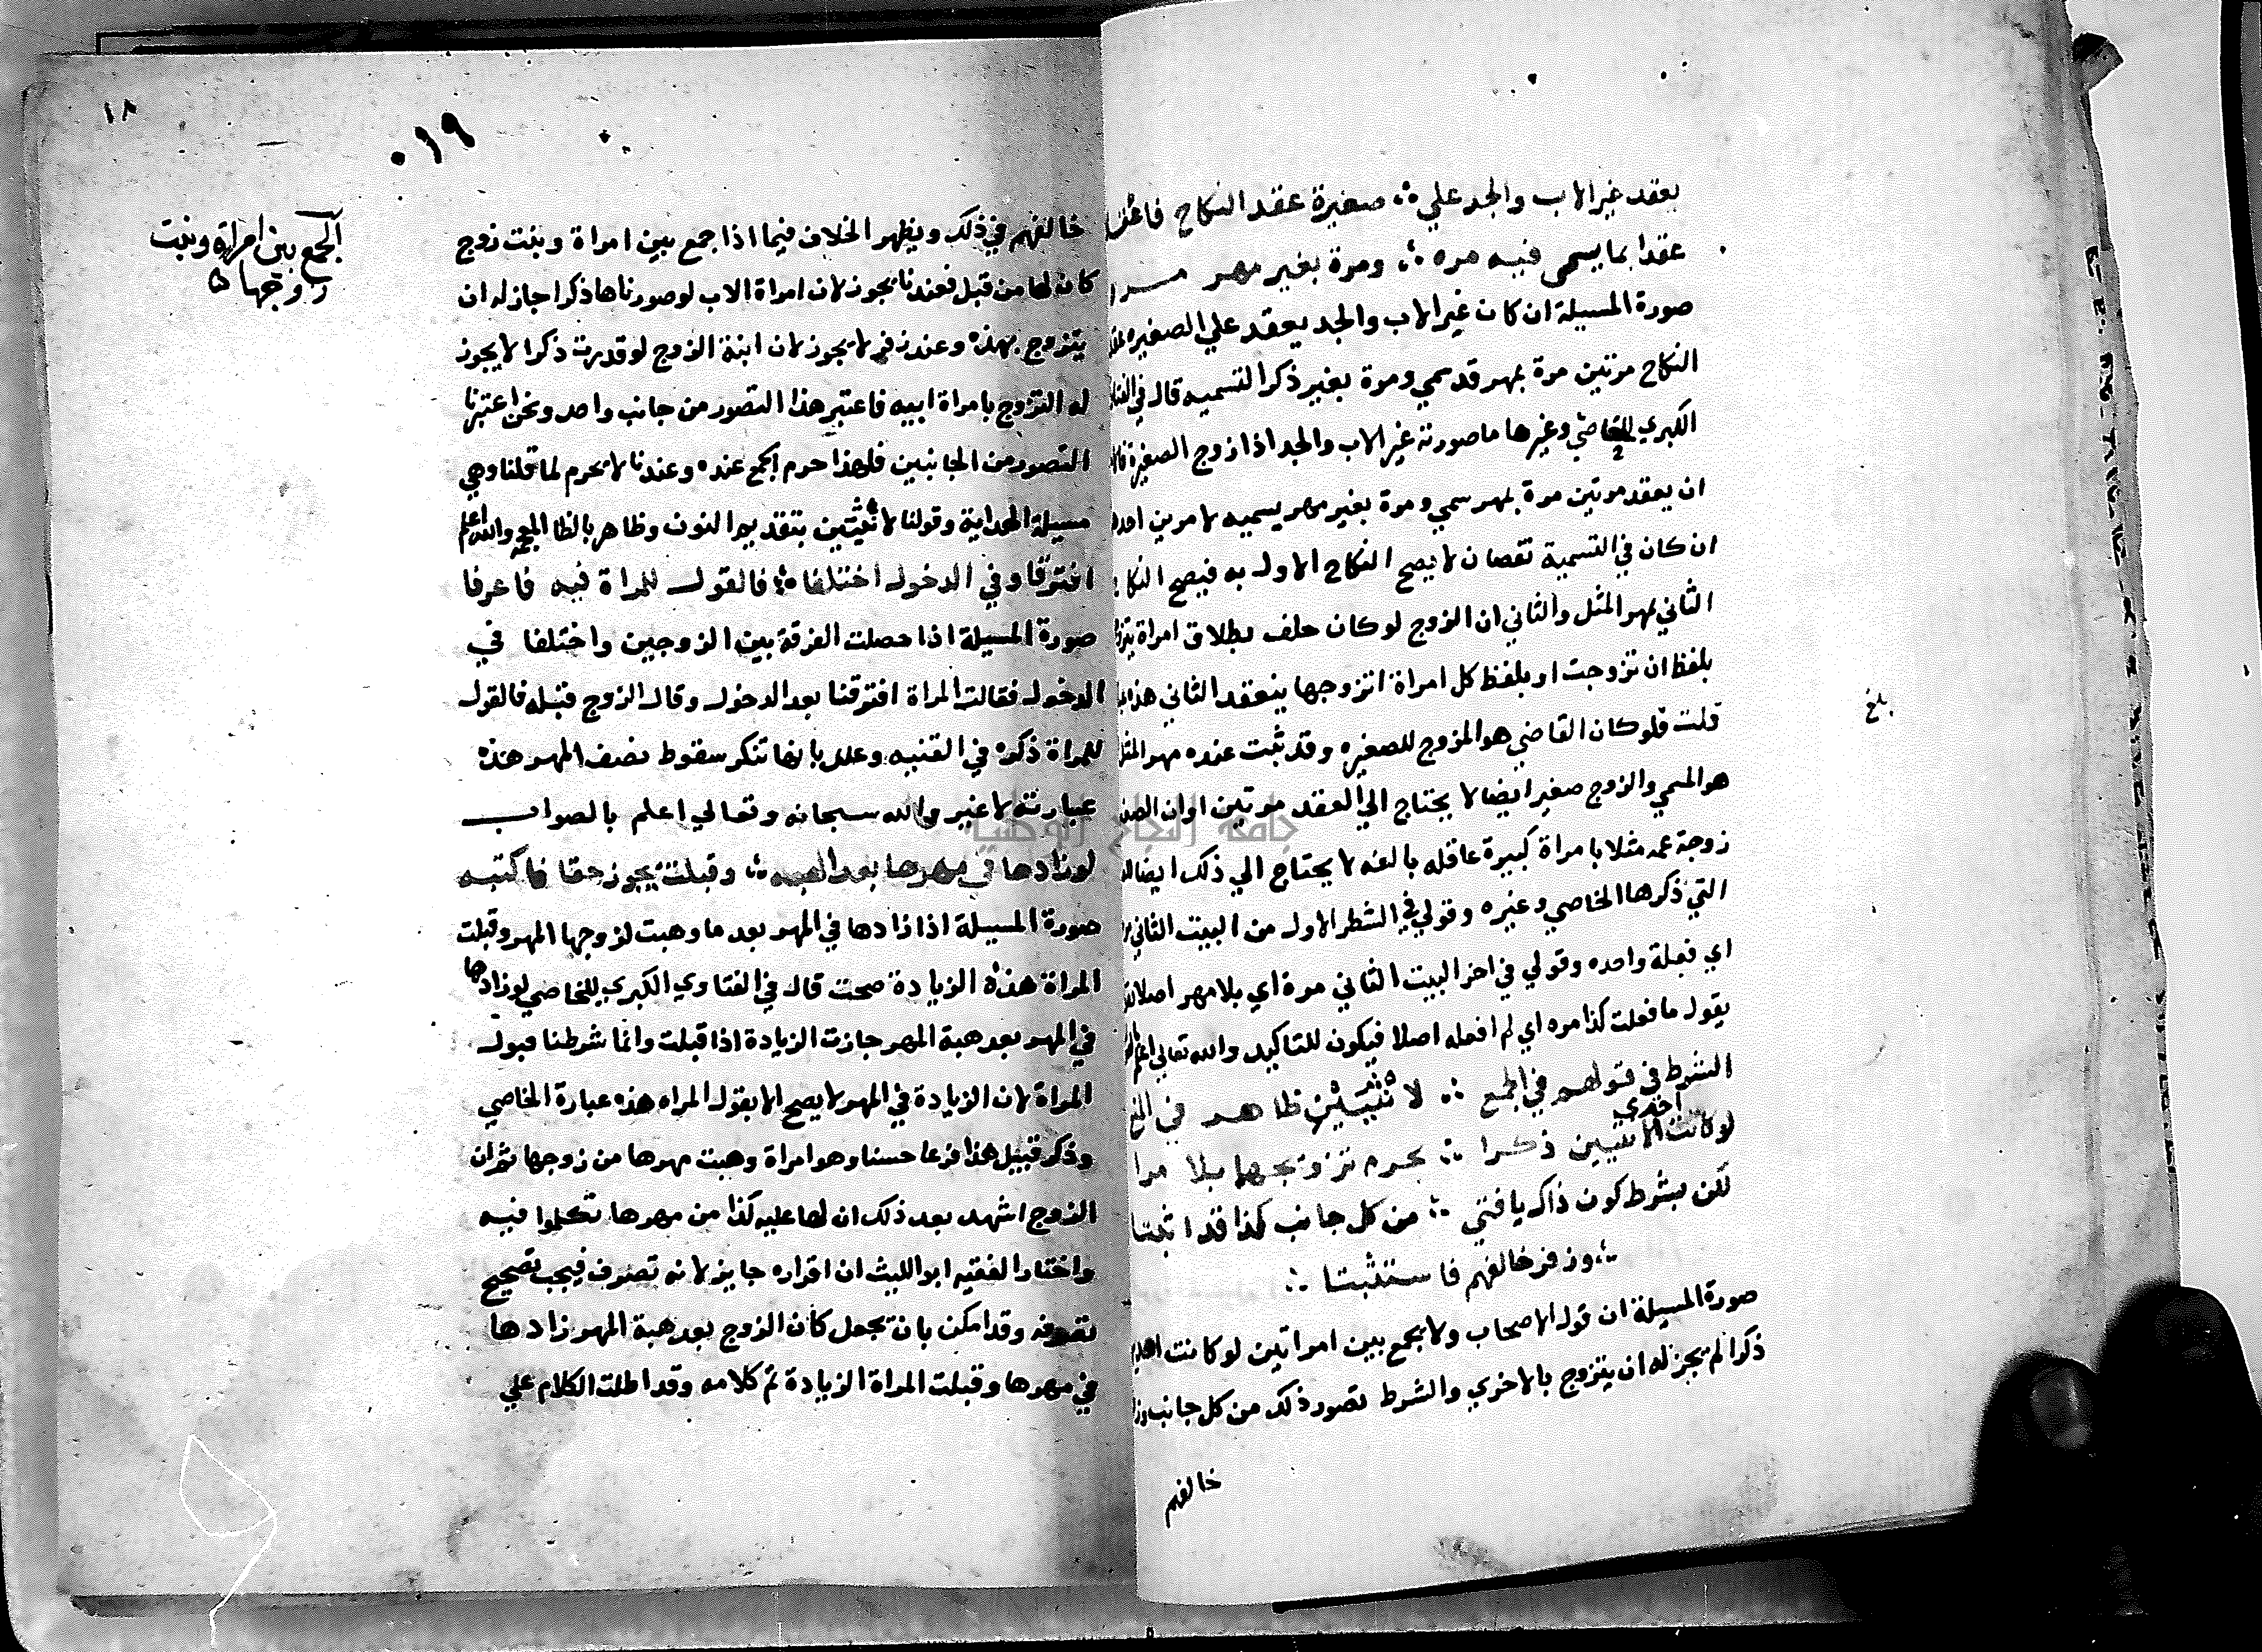 بعقد غير الاب والجد علي ∴ صغيرة عقد النكاح فاعقل
عقدا بما يسمى فيه مره ∴ ومرة بغير مهر
صورة المسيلة ان كان غير الاب والجد يعقد علي الصغيره
النكاح مرتين مرة بمهر قد سمي ومرة بغير ذكر التسميه قال في
الكبري للخاصي وغيرها ما صورته غير الاب والجد اذا زوج الصغيرة
ان يعقد مرتين مرة بمهر سمي ومرة بغير مهر يسميه لامرين
ان كان في التسمية نقصان لا يصح النكاح الاول به فيصح النكاح
الثاني بمهر المثل والثاني ان الزوج لو كان حلف بطلاق امراة
بلفظ ان تزوجت او بلفظ كل امراة اتزوجها ينعقد الثاني
قلت فلو كان القاضي هو المزوج للصغيره وقد ثبت عنده مهر المثل
هو المسمي والزوج صغير ايضا لا يحتاج الي العقد مرتين او ان
زوجة عمه مثلا بامراة كبيرة عاقله بالغه لا يحتاج الي ذلك ايضا
التي ذكرها الخاصي وغيره وقولي في الشطر الاول من البيت الثاني
اي فعلة واحده وقولي في اخر البيت الثاني مرة اي بلا مهر اصلا
يقول ما فعلت كذا مره اي لم افعله اصلا فيكون للتاكيد والله تعالي اعلم
الشرط في قولهم في الجمع ∴ لا ثنتين ظاهر في
احدي
لو كانت الاثنتين ذكرا ∴ يحرم تزويجها بلا مرا
لكن بشرط كون ذاك يا فتي ∴ من كل جانب كذا قد اثبتا
∴ وزفر خالفهم فاستثبتا ∴
صورة المسيلة ان قول الاصحاب ولا يجمع بين امراتين لو كانت
ذكرا لم يجز له ان يتزوج بالاخري والشرط تصور ذلك من كل جانب
خالفهم
بلغ
١٨
٠١٩
الجمع بين امراة وبنت
زوجها
خالفهم في ذلك ويظهر الخلاف فيما اذا جمع بين امراة وبنت زوج
كان لها من قبل فعندنا يجوز لان امراة الاب لو صورناها ذكرا جاز له ان
يتزوج بهذه وعند زفر لا يجوز لان ابنة الزوج لو قدرت ذكرا لا يجوز
له التزوج بامراة ابيه فاعتبر هذا التصور من جانب واحد ونحن اعتبرنا
التصور من الجانبين فلهذا حرم الجمع عنده وعندنا لا يحرم لما قلنا وهي
مسيلة الهداية وقولنا لا ثنتين بتقديم النون وظاهر بالظا المعجمة والله اعلم
افترقا وفي الدخول اختلفا ∴ فالقول للمراة فيه فاعرفا
صورة المسيلة اذا حصلت الفرقة بين الزوجين واختلفا في
الدخول فقالت المراة افترقنا بعد الدخول وقال الزوج قبله فالقول
للمراة ذكره في القنيه وعلل بانها تنكر سقوط نصف المهر هذه
عبارته لا غير والله سبحانه وتعالي اعلم بالصواب
لو زادها في مهرها بعد الهبه ∴ وقبلت يجوز حقا فاكتبه
صورة المسيلة اذا زادها في المهر بعد ما وهبت لزوجها المهر وقبلت
المراة هذه الزيادة صحت قال في الفتاوي الكبري للخاصي لو زادها
في المهر بعد هبة المهر جازت الزيادة اذا قبلت وانما شرطنا قبول
المراة لان الزيادة في المهر لا يصح الا بقول المراه هذه عبارة الخاصي
وذكر قبيل هذا فرعا حسنا وهو امراة وهبت مهرها من زوجها ثم ان
الزوج اشهد بعد ذلك ان لها عليه كذا من مهرها تكلموا فيه
واختار الفقيه ابو الليث ان اقراره جايز لانه تصرف فيجب تصحيح
تصرفه وقد امكن بان يجعل كان الزوج بعد هبة المهر زادها
في مهرها وقبلت المراة الزيادة تم كلامه وقد اطلت الكلام علي
جامعة النجاح الوطنية